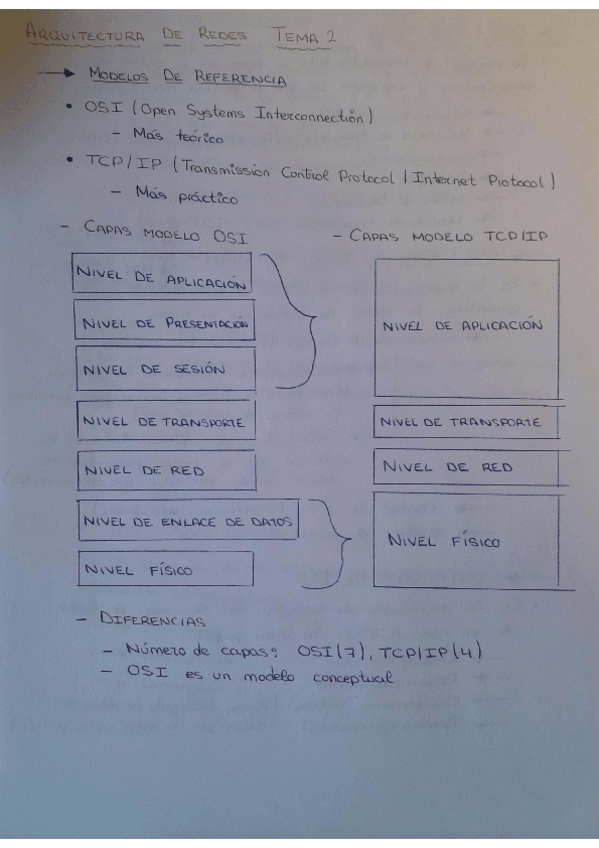 ARQUITECTURA DE REDES TEMA 2
→ MODELOS DE REFERENCIA
• OSI (Open Systems Interconnection)
- Más teórico
• TCP/IP (Transmission Control Protocol / Internet Protocol)
- Más práctico
- CAPAS MODELO OSI
NIVEL DE APLICACIÓN
NIVEL DE PRESENTACIÓN
NIVEL DE SESIÓN
NIVEL DE TRANSPORTE
NIVEL DE RED
NIVEL DE ENLACE DE DATOS
NIVEL FÍSICO
- CAPAS MODELO TCP/IP
NIVEL DE APLICACIÓN
NIVEL DE TRANSPORTE
NIVEL DE RED
NIVEL FÍSICO
- DIFERENCIAS
- Número de capas: OSI(7), TCP/IP(4)
- OSI es un modelo conceptual